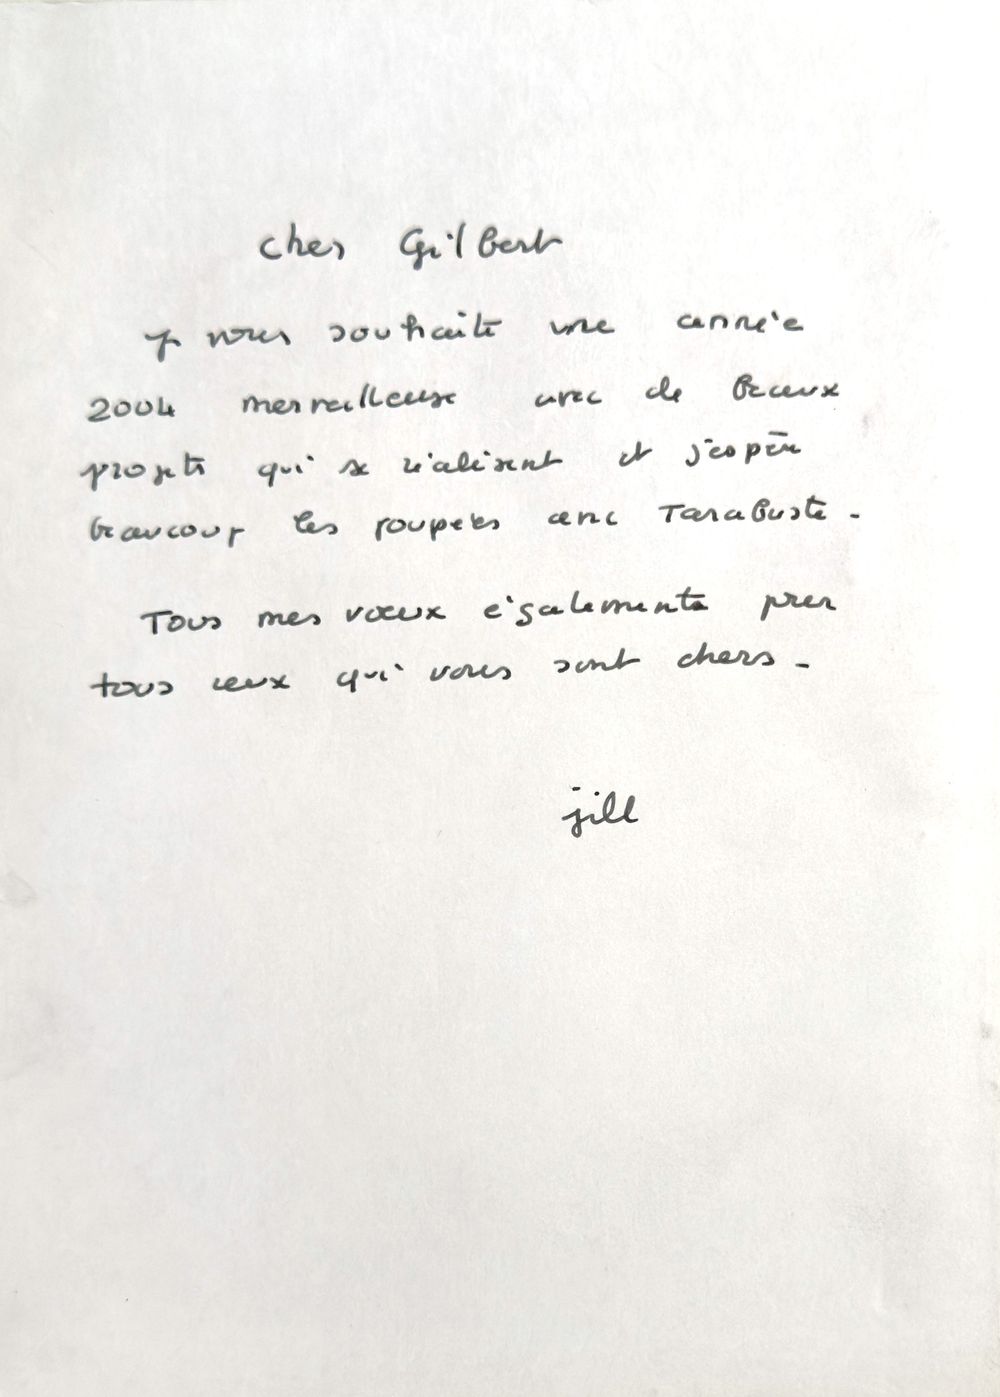 cher Gilbert
je vous souhaite une année
2004 merveilleuse avec de beaux
projets qui se réalisent et j'espère
beaucoup les poupées avec Tarabuste -
Tous mes vœux également pour
tous ceux qui vous sont chers -
jill